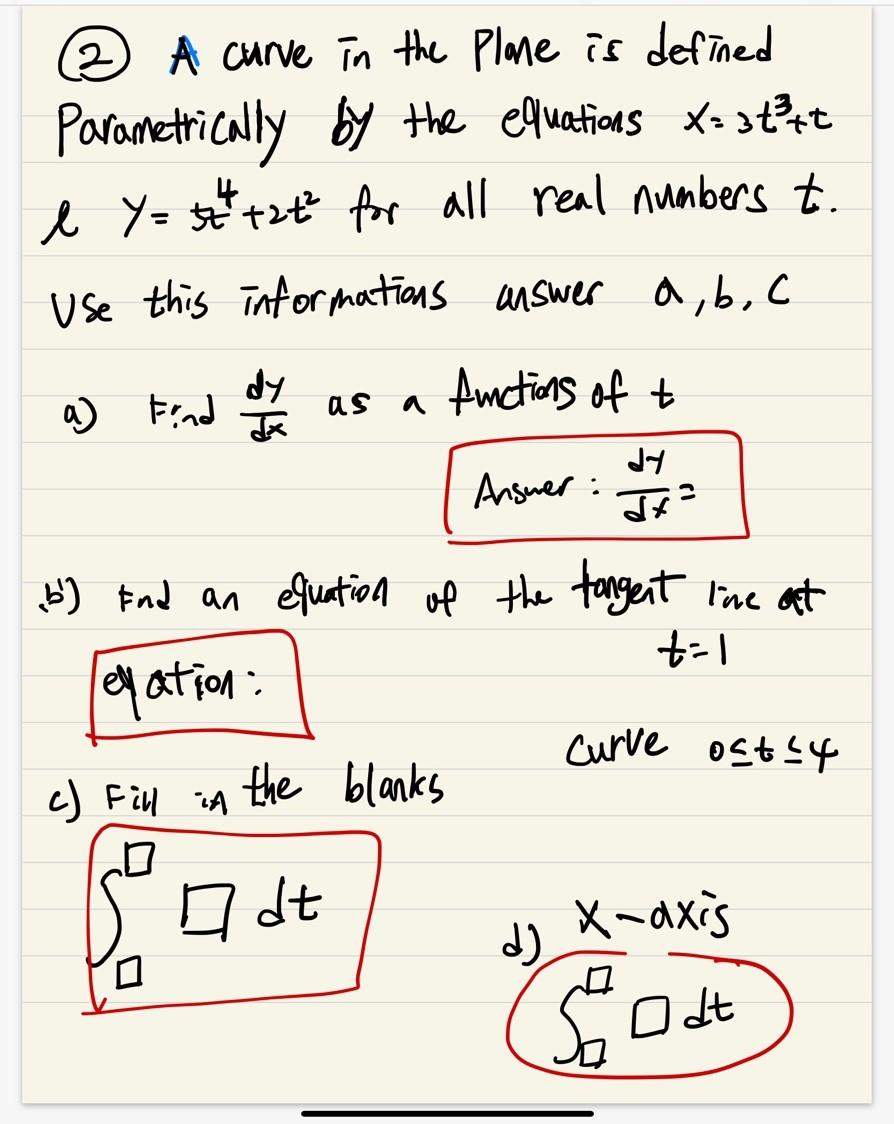 ② A curve in the Plane is defined
Parametrically by the equations x=3t³+t
& Y=5t⁴+2t² for all real numbers t.
Use this informations answer a,b,c
a) Find dy/dx as a functions of t
Answer: dy/dx=
b) Find an equation of the tangent line at
t=1
eqation:
Curve 0≤t≤4
c) Fill in the blanks
∫□□ □ dt
X-axis
d)
∫□□ □ dt